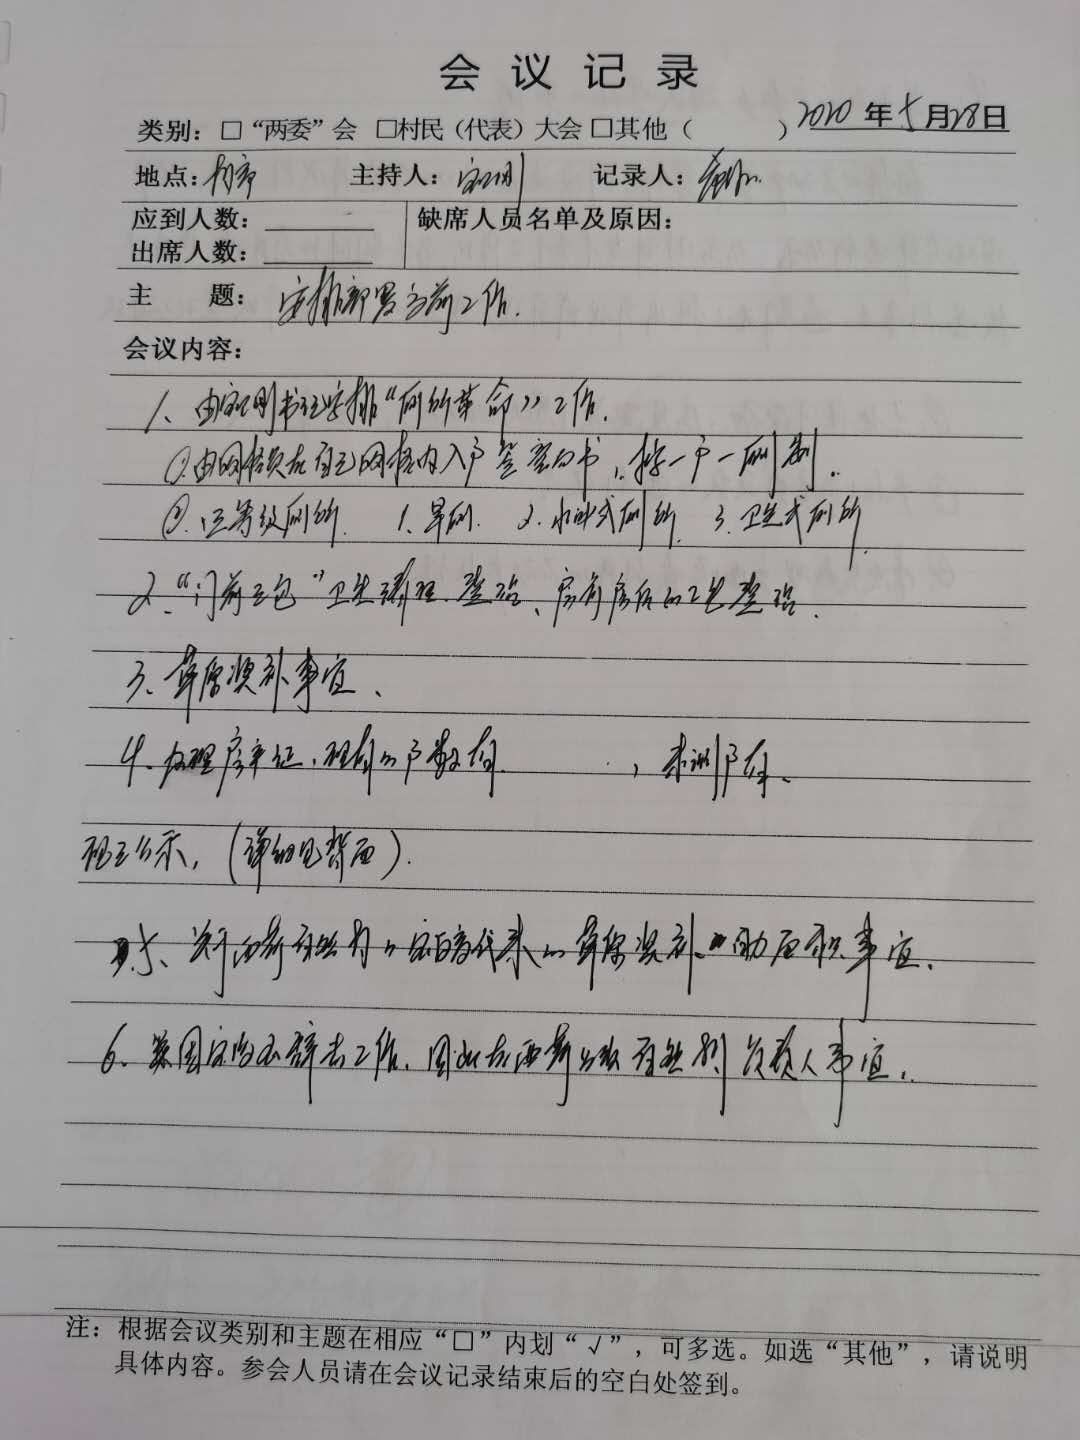 会议记录
2020年5月28日
类别：□“两委”会 □村民（代表）大会 □其他（ ）
地点：村部 主持人： 记录人：
应到人数： 缺席人员名单及原因：
出席人数：
主 题：安排部署当前工作.
会议内容：
1、由 书记安排“厕所革命”工作.
①.由网格员在自己网格内入户签 书，按一户一厕制.
②.三等级厕所. 1.旱厕. 2.水冲式厕所. 3.卫生式厕所.
2、“门前三包”卫生清理.整治、房前房后的卫生整治.
3、草原奖补事宜、
4、办理房产证，现有的户数有 ，未测户有、
现已公示，（详细见背面）.
5、关于 草原奖补 面积事宜.
6、 因 辞去工作. 因此在西 负责人事宜.
注：根据会议类别和主题在相应“□”内划“√”，可多选。如选“其他”，请说明
具体内容。参会人员请在会议记录结束后的空白处签到。